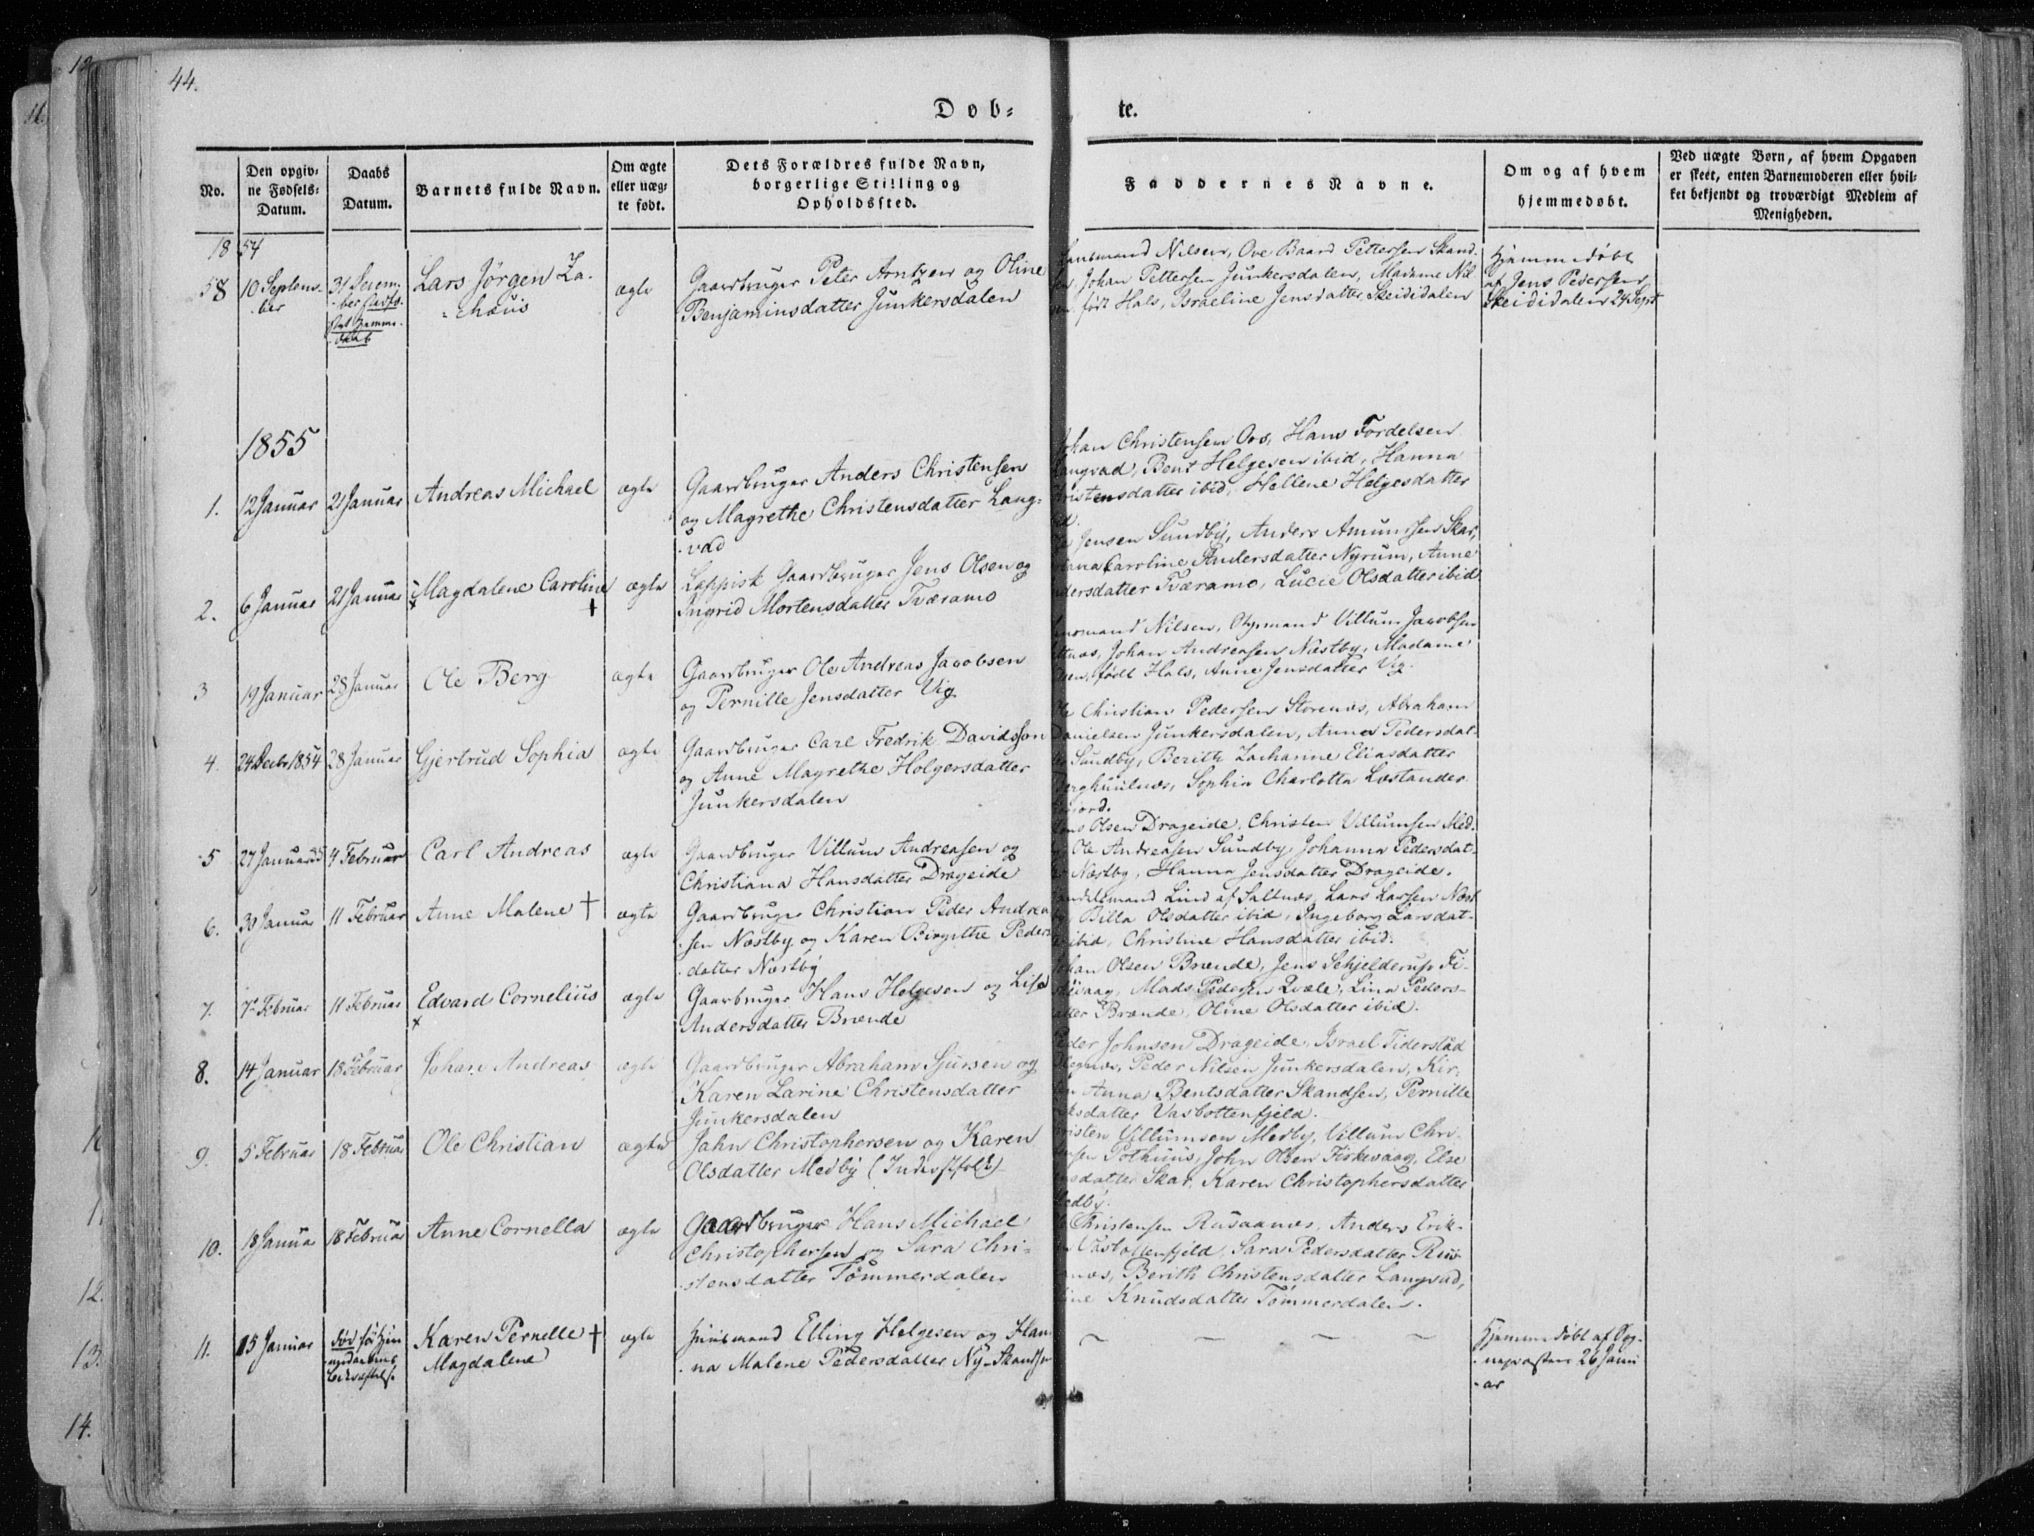 44.
Dob=
te.
No.
Den opgiv=
ne Fødsels=
Datum.
Daabs
Datum.
Barnets fulde Navn.
Om ægte
eller uæg=
te født.
Dets Forældres fulde Navn,
borgerlige Stilling og
Opholdssted.
Faddernes Navne.
Om og af hvem
hjemmedøbt.
Ved uægte Børn, af hvem Opgaven
er skeet, enten Barnemoderen eller hvil=
ket bekjendt og troværdigt Medlem af
Menigheden.
1854
58
10 Septem-
-ber
31 Decem-
-ber
Lars Jørgen Za-
-chæus
ægte
Gaardbruger Peter Arntzen og Oline
Benjaminsdatter Junkersdalen
Nilsen, Ove Baard Pettersen Skand-
Johan Pettersen Junkersdalen, Madame Nil-
født Hals, Israeline Jensdatter Skeididalen
Hjemmedøbt
af Jens Pedersen
Skeididalen 24 Sept
1855
1.
12 Januar
21 Januar
Andreas Michael
ægte
Gaardbruger Anders Christensen
og Magrethe Christensdatter Lang-
-vad
Christensen Hans Tordelsen
Bent Helgesen ibid, Hanna
ibid, Hellene Helgesdatter
2.
6 Januar
21 Januar
Magdalene Caroline
+
ægte
Lappisk Gaardbruger Jens Olsen og
Ingrid Mortensdatter Tværamo
Jensen Sundby, Anders Amundsen Skar,
Caroline Andersdatter Nyrum, Anne
Tværamo, Lucie Olsdatter ibid
3
19 Januar
28 Januar
Ole Berg
ægte
Gaardbruger Ole Andreas Jacobsen
og Pernille Jensdatter Vig
Nilsen, Villum Jacobsen
Johan Andreasen Næstby, Madame
født Hals, Anne Jensdatter Vig.
4.
24 Decbr 1854
28 Januar
Gjertrud Sophia
ægte
Gaardbruger Carl Fredrik Davidsson
og Anne Magrethe Holgersdatter
Junkersdalen
Christian Pedersen Storenæs, Abraham
Danielsen Junkersdalen, Anne Pedersdat-
Sundby, Berith Zachanne Eliasdatter
Sophia Charlotta Læstander
5
27 Januar
4 Februar
Carl Andreas
ægte
Gaardbruger Villum Andreasen og
Christiana Hansdatter Drageide
Olsen Drageide, Christen Villumsen Med-
Ole Andreasen Sundby, Johanna Pedersdat-
Næstby, Hanna Jensdatter Drageide.
6.
30 Januar
11 Februar
Anne Malene +
ægte
Gaardbruger Christian Peder Andrea
-sen Næstby og Karen Birgithe Peders
-datter Næstby
Lind af Saltnæs, Lars Larsen Næst
Billa Olsdatter ibid, Ingeborg Larsdat-
ibid, Christine Hansdatter ibid.
7.
7 Februar
11 Februar
Edvard Cornelius
ægte
Gaarbruger Hans Helgesen og Lisa
Andersdatter Brænde
Olsen Brænde, Jens Schjelderup Fi-
Mads Pedersen Qvale, Lina Peders-
Brænde, Oline Olsdatter ibid.
8.
14 Januar
18 Februar
Johan Andreas
ægte
Gaardbruger Abraham Sjursen og
Karen Larine Christensdatter
Junkersdalen
Johnsen Drageide, Israel Tiderstad
Peder Nilsen Junkersdalen, Kir-
Anna Bentsdatter Skandsen, Pernille
Vasbottenfjeld.
9.
5 Februar
18 Februar
Ole Christian
ægte
Jahn Christophersen og Karen
Olsdatter Medby (Inderstfolk)
Villumsen Medby, Villum Chri-
Pothuus, John Olsen Fiskevaag, Else
Skar, Karen Christophersdatter
Medby.
10.
18 Januar
18 Februar
Anne Cornella
ægte
Gaardbruger Hans Michael
Christophersen og Sara Chri-
-stensdatter Tømmerdalen
Christensen Rusaanæs, Anders Erik-
Vasbottenfjeld, Sara Pedersdatter Rus-
Berith Christensdatter Langvad,
Knudsdatter Tømmerdalen.
11.
15 Januar
Karen Pernelle +
Magdalene
ægte
Huusmand Elling Helgesen og Han-
-na Malene Pedersdatter Ny-Skandsen
Hjemmedøbt af Sog-
-nepræsten 26 Janu
-ar
12.
13.
14.